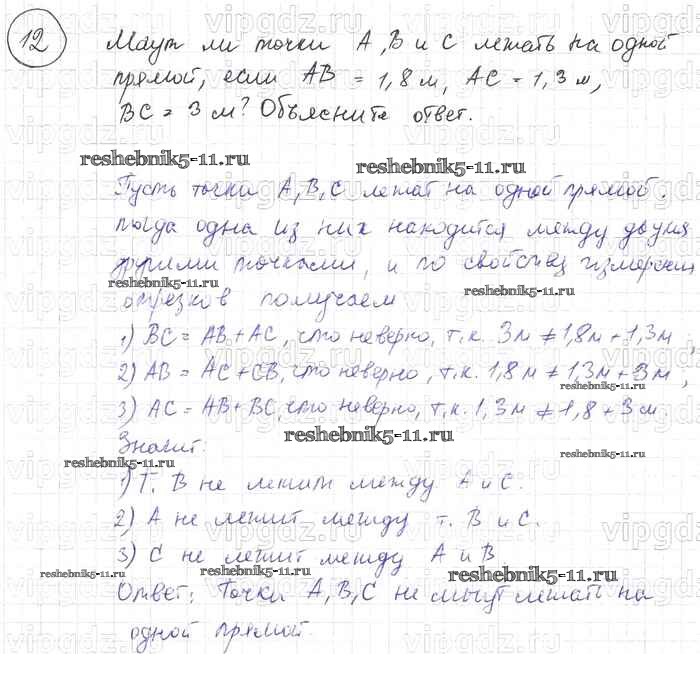 12 Могут ли точки А, В и С лежать на одной
прямой, если АВ = 1,8 м, АС = 1,3 м,
ВС = 3 м? Объясните ответ.
reshebnik5-11.ru reshebnik5-11.ru
Пусть точки А, В, С лежат на одной прямой.
тогда одна из них находится между двумя
другими точками, и по свойству измерения
reshebnik5-11.ru
отрезков получаем
1) ВС = АВ + АС, что неверно, т.к. 3м ≠ 1,8м + 1,3м,
2) АВ = АС + СВ, что неверно, т.к. 1,8 м ≠ 1,3м + 3м,
reshebnik5-11.ru
3) АС = АВ + ВС, что неверно, т.к. 1,3м ≠ 1,8 + 3м.
reshebnik5-11.ru
Значит:
reshebnik5-11.ru reshebnik5-11.ru
1) Т. В не лежит между А и С.
2) А не лежит между т. В и С.
3) С не лежит между А и В
reshebnik5-11.ru reshebnik5-11.ru reshebnik5-11.ru
Ответ: Точки А, В, С не могут лежать на
одной прямой.
vipgdz.ru